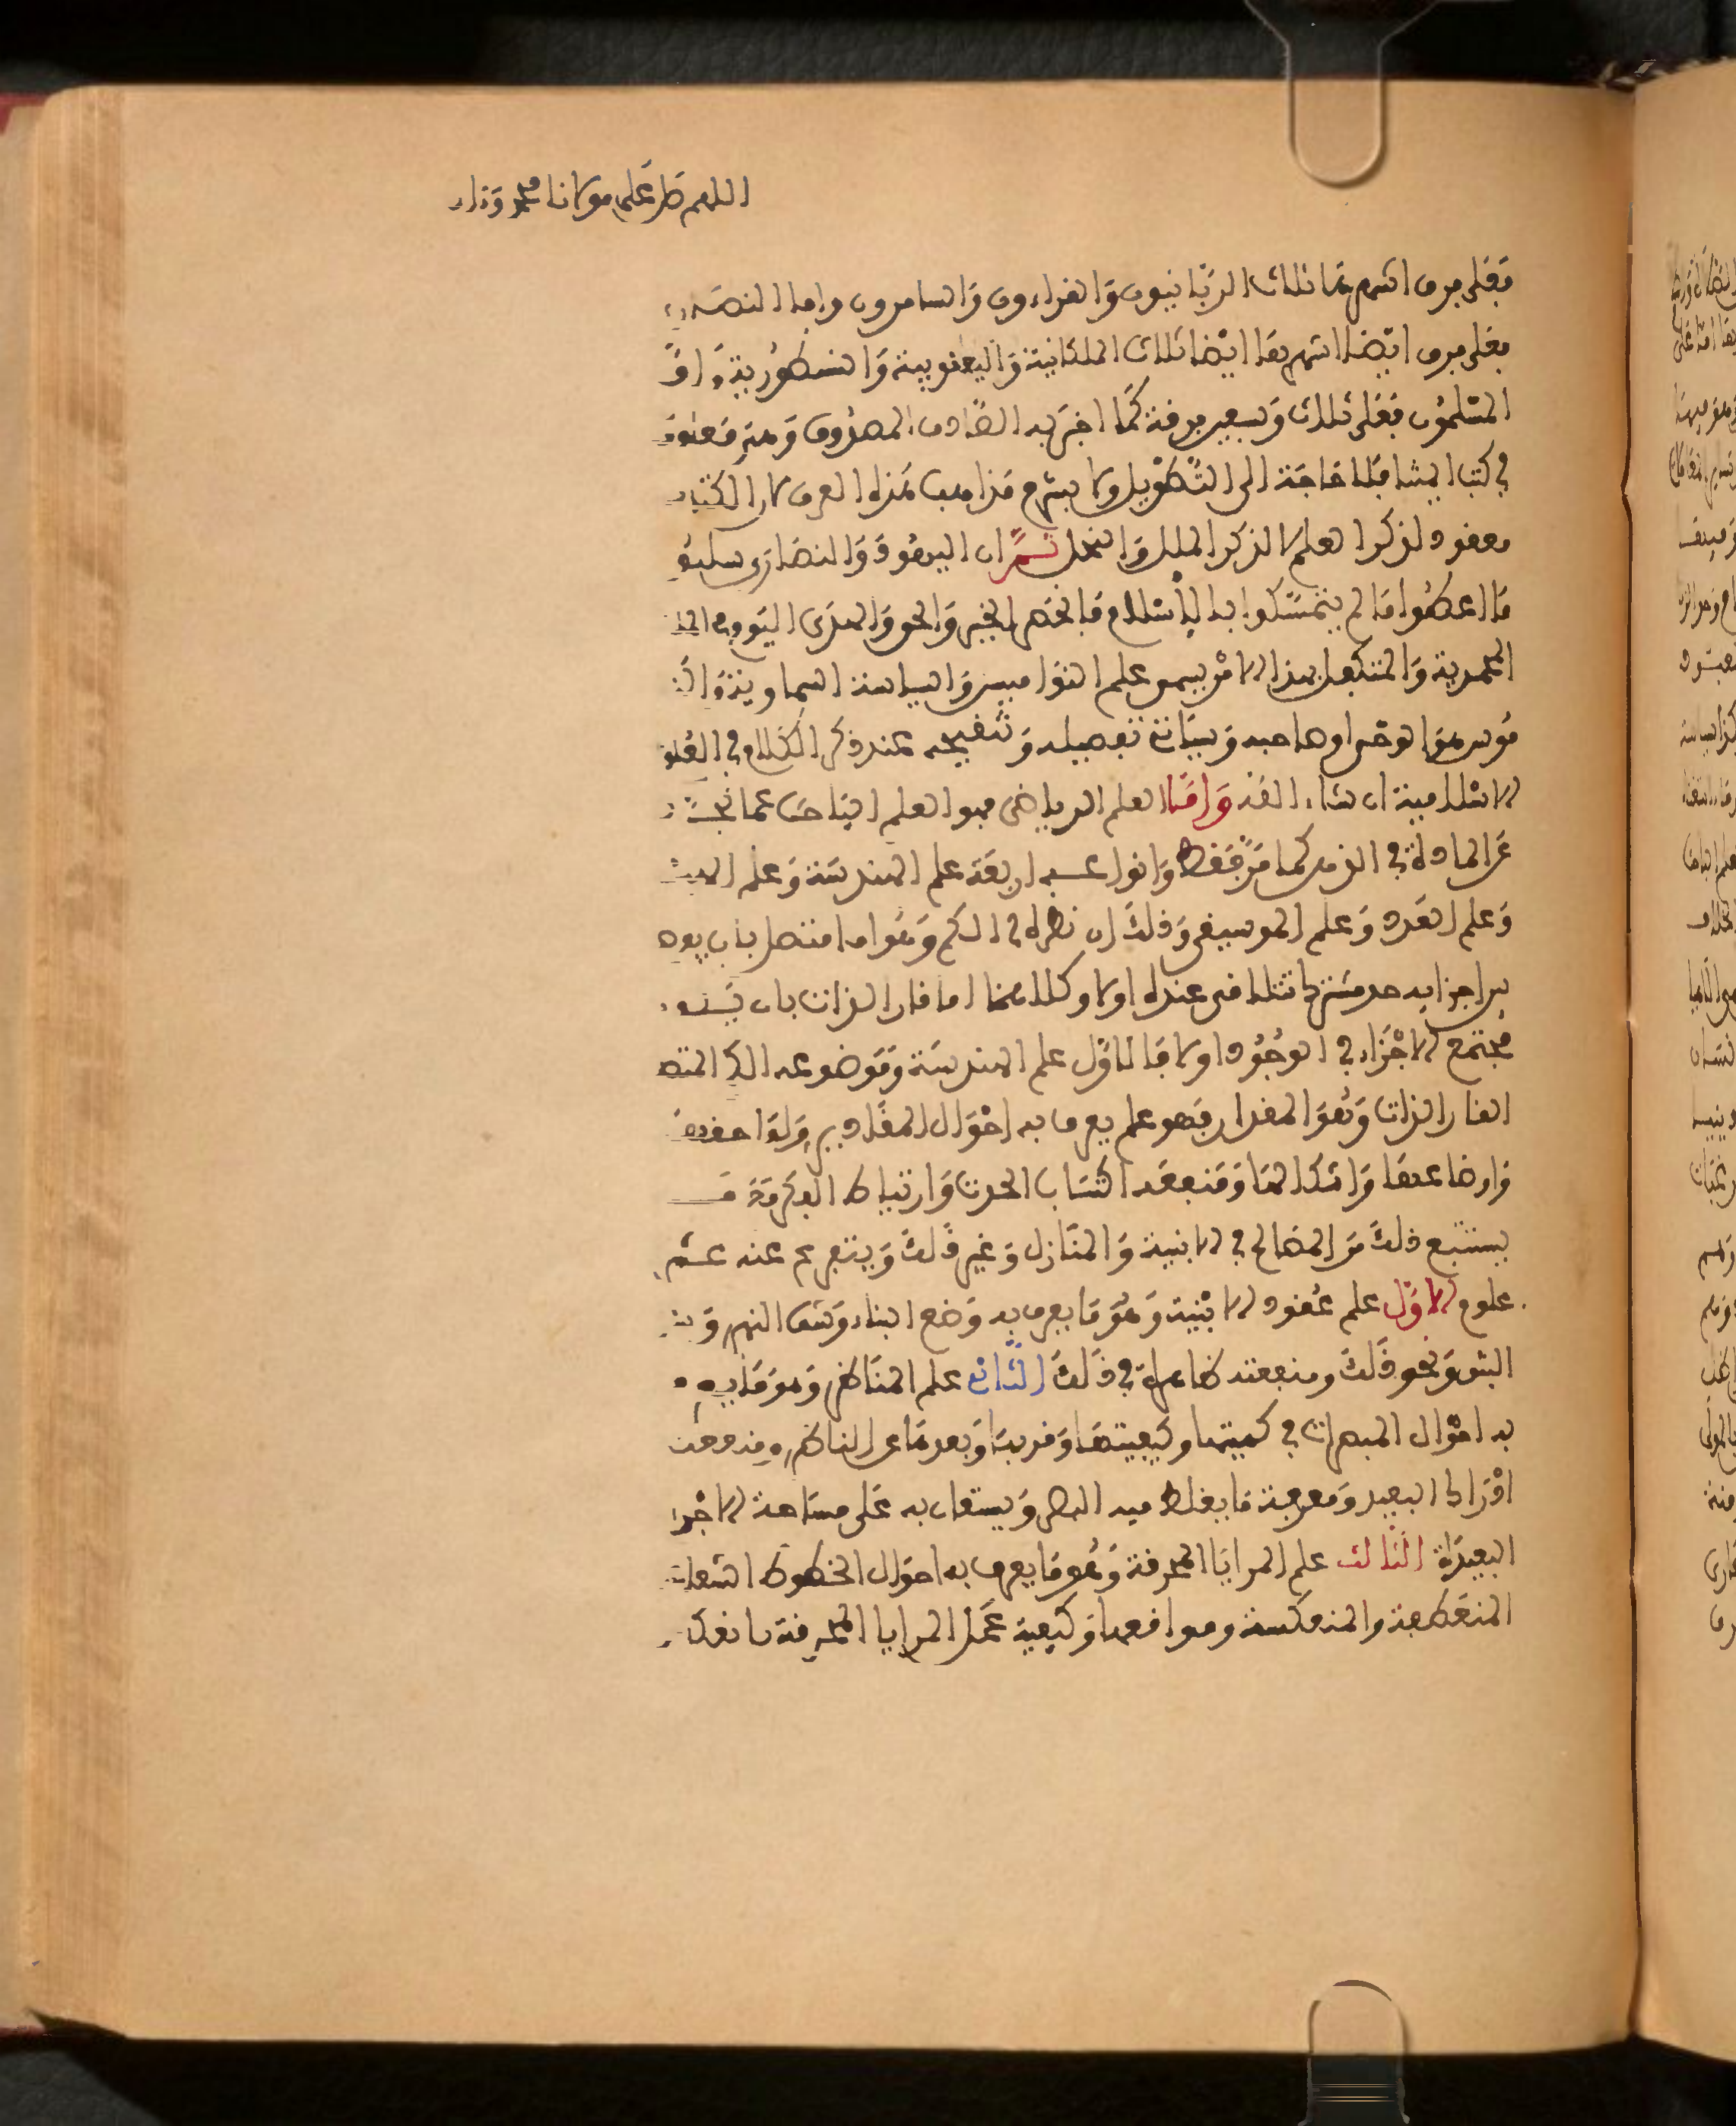 اللهم صل على مولانا محمد وآله
فعلى فرق اشهرها ثلاث الربانيون والقراءون والسامرون واما النصارى
فعلى فرق ايضا اشهرها ايضا ثلاث الملكانية واليعقوبية والنسطورية واما
المسلمون فعلى ثلاث وسبعين فرقة كما اخبر به الصادق المصدوق وهي معلومة
في كتب المشا فلا حاجة الى التطويل ولا بشرح مذاهب هذه الفرق لان الكتاب
معقود لذكر العلم لا لذكر الملل والنحل ثم ان اليهود والنصارى سلبوا
ما اعطوا ما لم يتمسكوا بالاسلام فانحصر الخير والحق والهدى اليوم في الملة
المحمدية والمتكفل بهذا الامر يسمى علم النواميس والسياسة السماوية
مؤسسها الوحي وصاحبه وسياتي تفصيله وتنقيحه عند ذكر الكلام في العلوم
الاسلامية ان شاء الله واما العلم الرياضي فهو العلم الباحث عما تجرد
عن المادة في الذهن كما مر فقط وانواعه اربعة علم الهندسة وعلم الهيئة
وعلم العدد وعلم الموسيقى وذلك ان نظره في الكم وهو اما متصل بان يوجد
بين اجزايه حد مشترك تتلاقى عنده اولا وكلاهما اما قار الذات بان يكون
مجتمع الاجزاء في الوجود اولا فالاول علم الهندسة وموضوعه الكم المتصل
القار الذات وهو المقدار فهو علم يعرف به احوال المقادير ولواحقها
واوضاعها واشكالها ومنفعته اكتساب الحدق وارتياض الفكرة مع
يستتبع ذلك من المصالح في الابنية والمنازل وغير ذلك ويتفرع عنه عشرة
علوم الاول علم عقود الابنية وهو ما يعرف به وضع البناء وشق النهر و
البثق ونحو ذلك ومنفعته ظاهرة في ذلك الثاني علم المناظر وهو ما يعرف
به احوال المبصرات في كميتها وكيفيتها وقربها وبعدها عن الناظر ومنفعته
ادراك البعيد ومعرفة ما يغلط فيه البصر ويستعان به على مساحة الاجرام
البعيدة الثالث علم المرايا المحرقة وهو ما يعرف به احوال الخطوط الشعاعية
المنعطفة والمنعكسة ومواقعها وكيفية عمل المرايا المحرقة بانعكاس